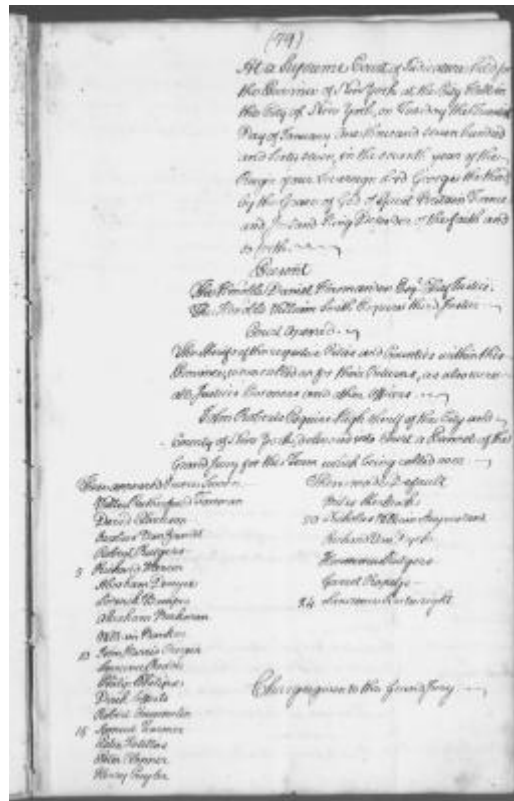 (79)
At a Supreme Court of Judicature held for
the Province of New York at the City Hall in
the City of New York, on Tuesday the
Day of January one thousand seven hundred
and sixty seven, in the seventh year of the
Reign of our Sovereign Lord George the third
by the Grace of God of Great Britain France
and Ireland King Defender of the faith and
so forth
Present
The Honble Daniel Horsmanden Esqr Chief Justice.
The Honble William Smith Esquire third Justice
Court opened
The Sheriffs of the respective Cities and Counties within this
Province, were called on for their Returns, as also were
all Justices Coroners and other Officers
John Roberts Esquire High Sheriff of the City and
County of New York, delivered into Court a Pannel of the
Grand Jury for the Term which being called over
Then appeared & were Sworn
Walter Rutherfurd Foreman
David Clarkson
Van Zandt
Robert Rutgers
5 Richard
Abraham
Abraham Beekman
William
10 John Harris Cruger
Philip
Dirck
Robert
15 Samuel
Peter
Henry Cuyler
These made Default
20 Nicholas William Stuyvesant
Richard
Hermanus Rutgers
Garret Rapalje
24 Lawrence Kortwright
Charge given to the Grand Jury